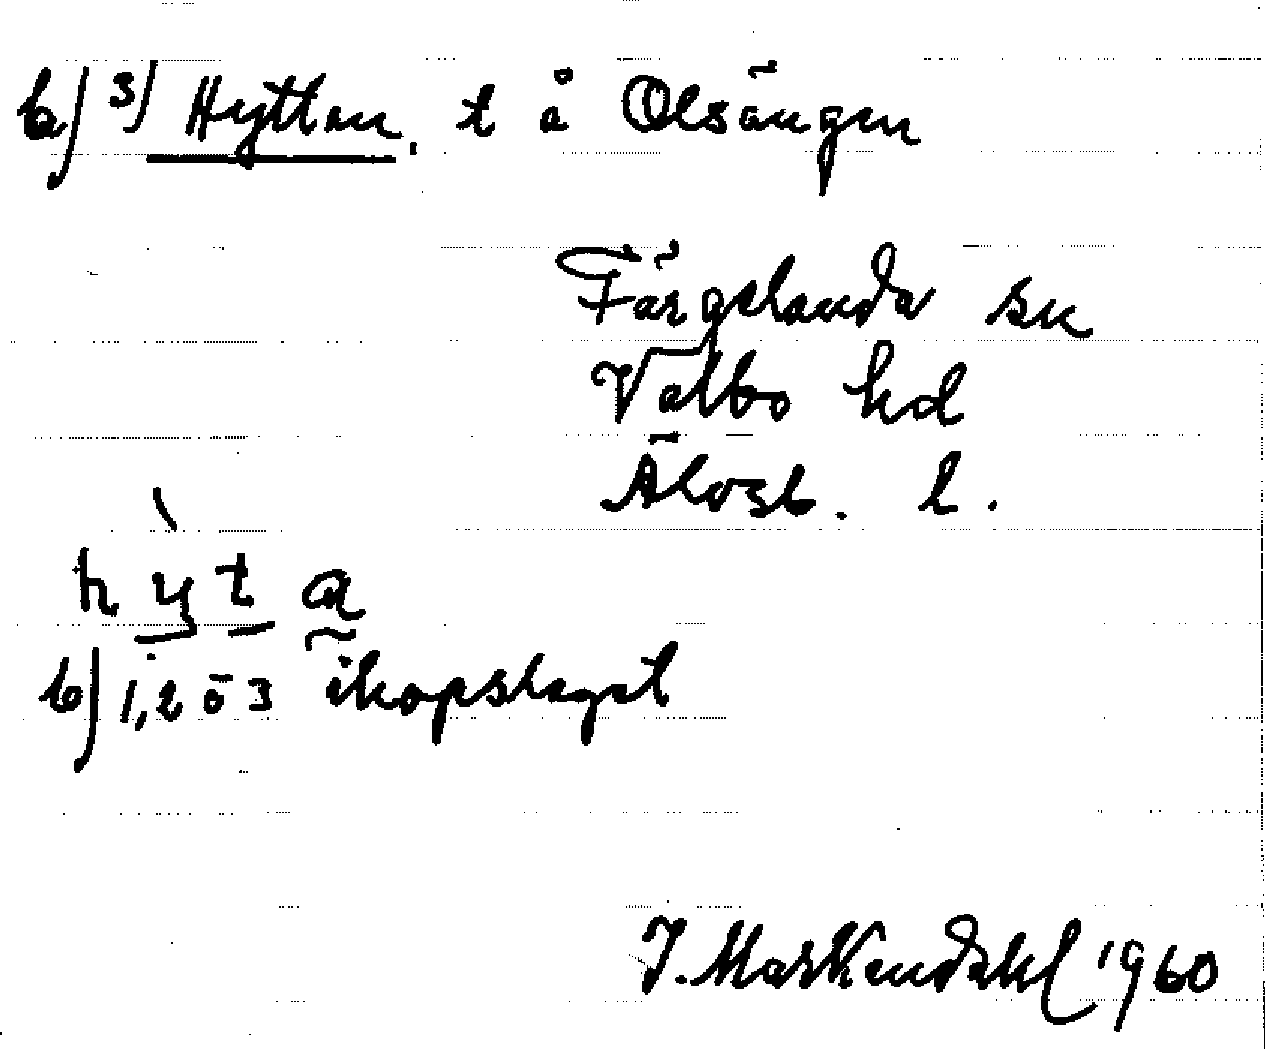 b) 3) Hyttan, t å Olsängen
Färgelanda sn
Valbo hd
Älvsb. l.
h y t a
b) 1, 2 o 3 ihopslaget
J. Markendahl 1960